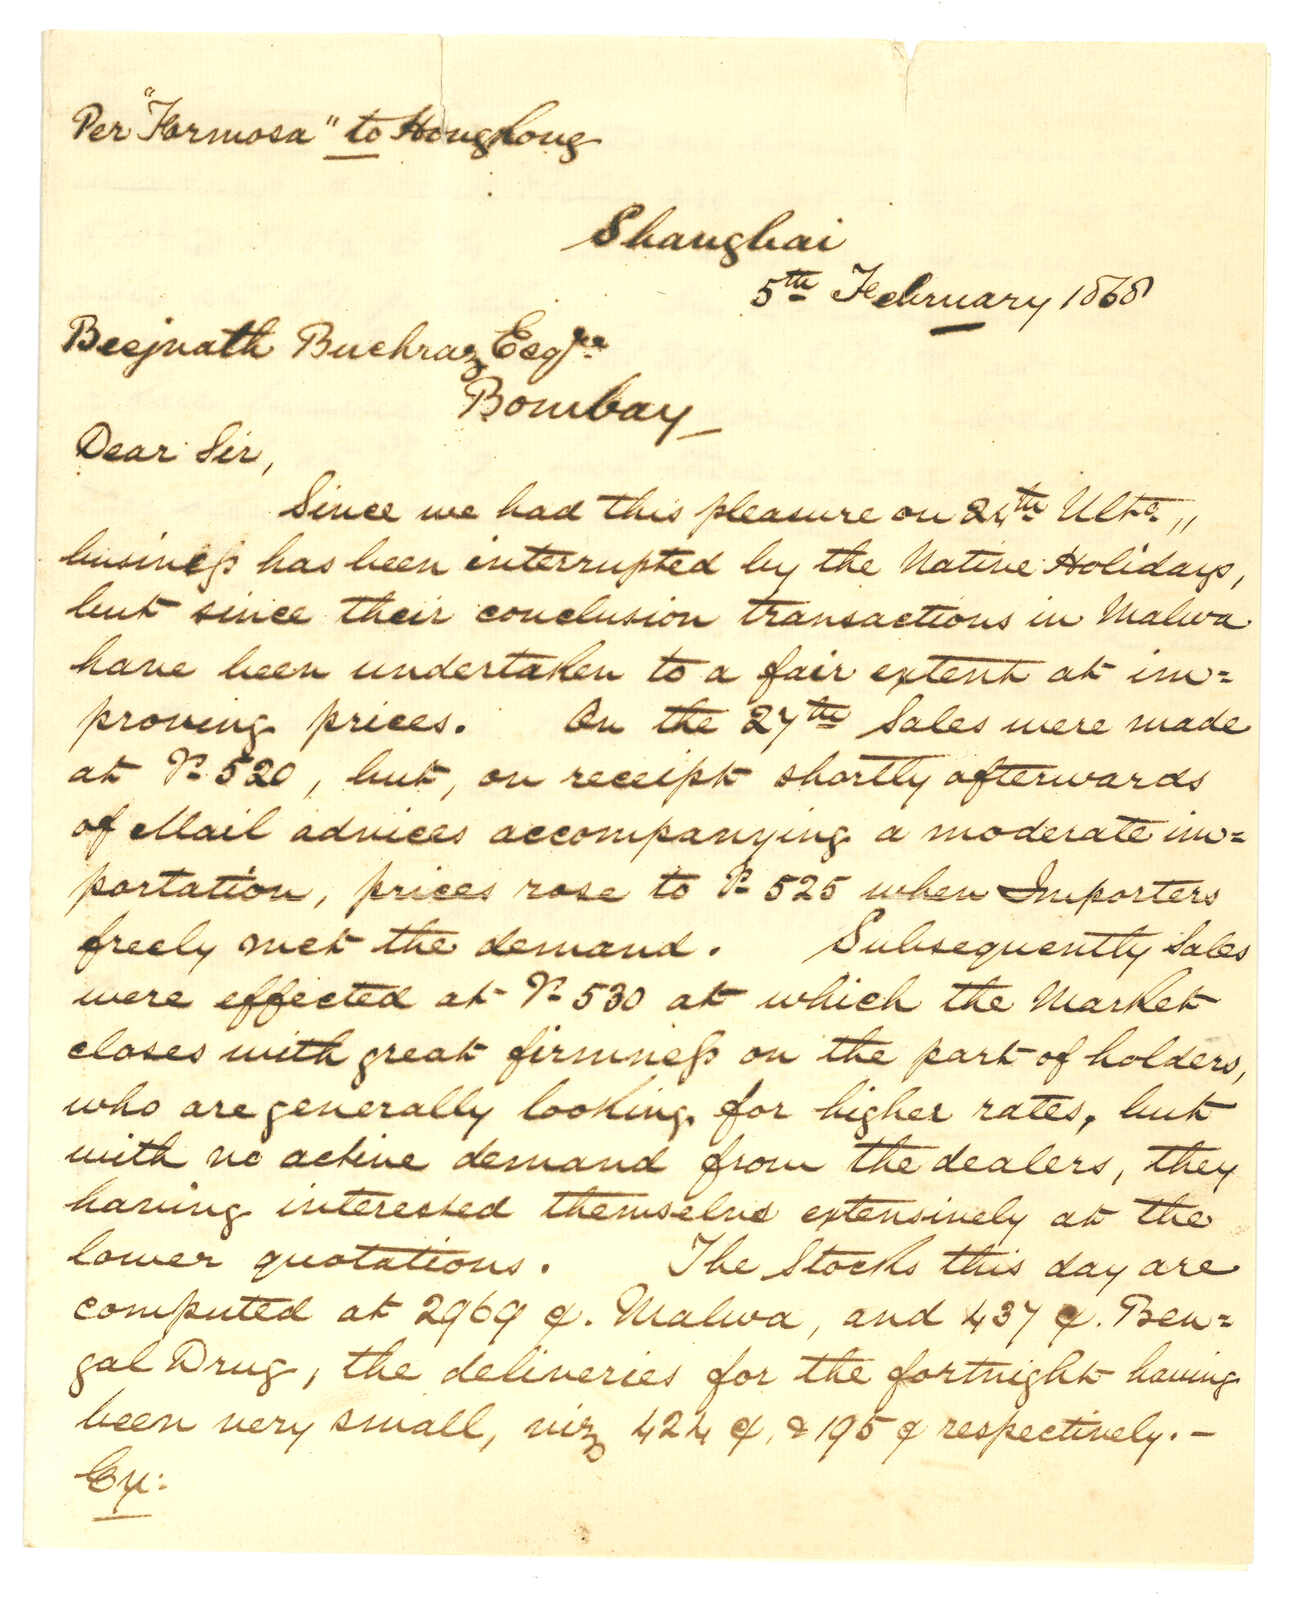 Per "Formosa" to Hongkong
Shanghai
5th February 1868
Beejnath Buchraz Esqre
Bombay
Dear Sir,
Since we had this pleasure on 24th Ulto,,
business has been interrupted by the Native Holidays,
but since their conclusion transactions in Malwa
have been undertaken to a fair extent at im=
proving prices. On the 27th Sales were made
at 520, but, on receipt shortly afterwards
of Mail advices accompanying a moderate im=
portation, prices rose to 525 when Importers
freely met the demand. Subsequently Sales
were effected at 530 at which the Market
closes with great firmness on the part of holders,
who are generally looking for higher rates, but
with no active demand from the dealers, they
having interested themselves extensively at the
lower quotations. The Stocks this day are
computed at 2969 Malwa, and 437 Ben=
gal Drug, the deliveries for the fortnight having
been very small, viz 424 & 195 respectively. -
Ex: